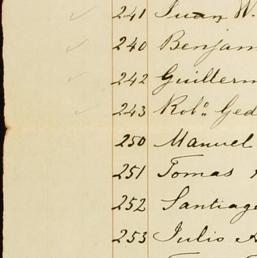 241 Juan W.
240 Benjam
242 Guillerm
243 Robº Ged
250 Manuel
251 Tomas
252 Santiago
253 Julio A